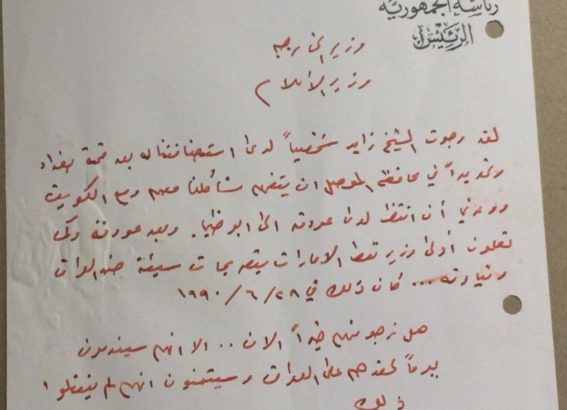 رئاسة الجمهورية
الرئيس
وزير الخارجية
وزير الاعلام
لقد رجوت الشيخ زايد شخصياً لدى استضافتنا له بعد قمة بغداد
وتحديداً في محافظة الموصل ان يتفهم مشاكلنا معهم ومع الكويت
ووعدني أن انتظر لدى عودته الى ابو ظبي. وبعد عودته
تعلون أدلى وزير نفط الامارات بتصريحات سيئة ضد العراق
وقيادته... كان ذلك في ٢٨/٦/١٩٩٠
هل نرجو منهم خيراً الان.. الا انهم سيندمون
يوماً لحقدهم على العراق وسيتمنون انهم لم يفعلوا
ذلك